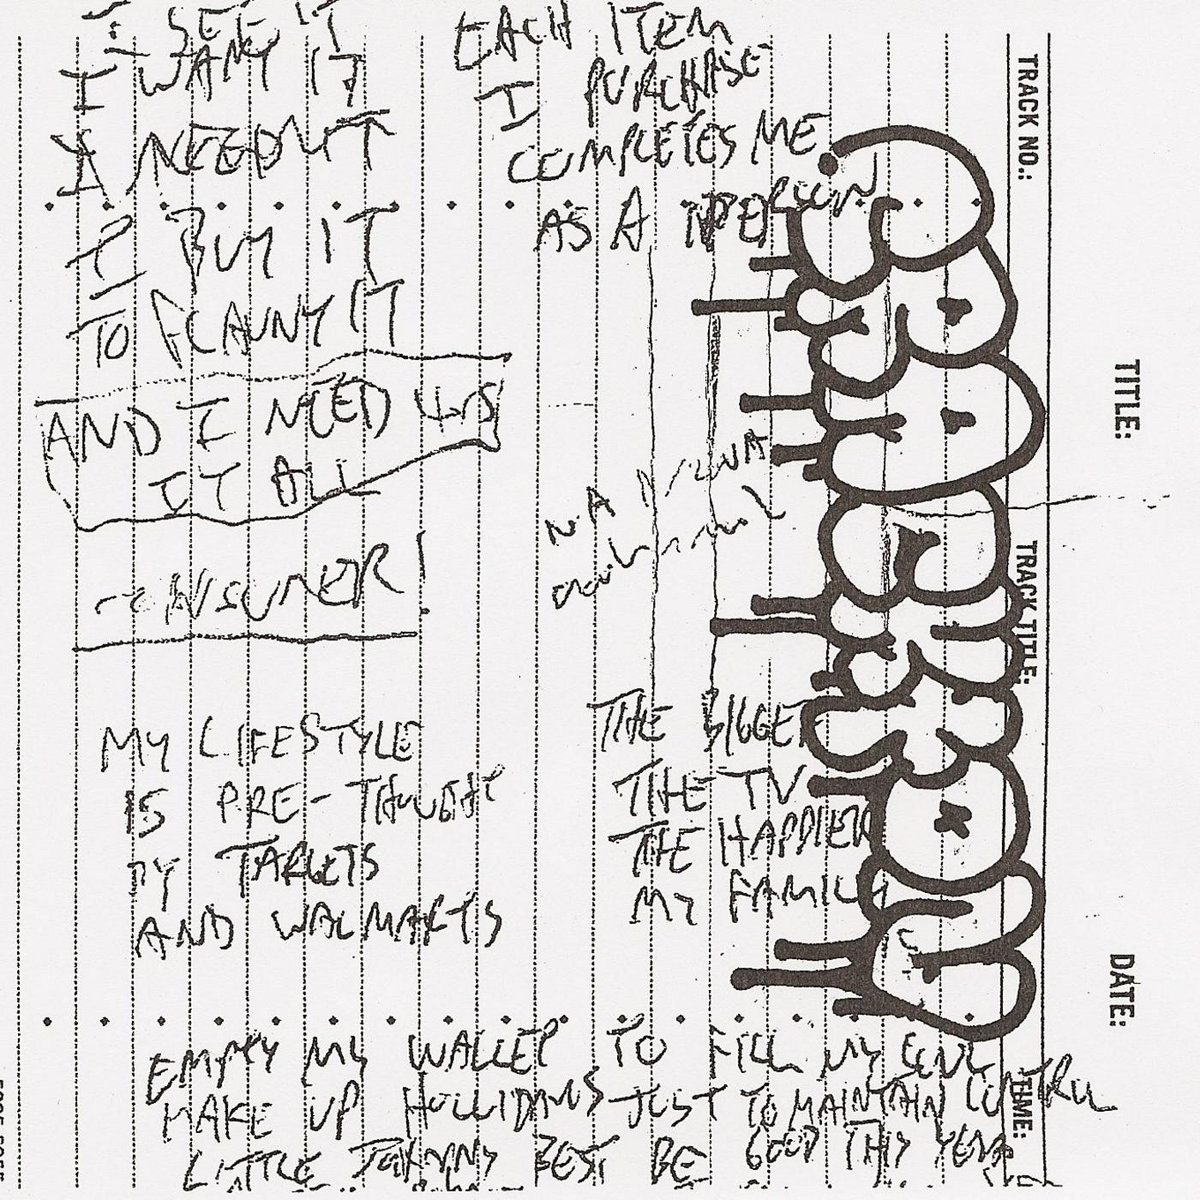 I SEE IT
I WANT IT
I NEED IT
I BUY IT
TO FLAUNT IT
AND I NEED
IT ALL
CONSUMER!
MY LIFESTYLE
IS PRE-THOUGHT
BY TARGETS
AND WALMARTS
EACH ITEM
I PURCHASE
COMPLETES ME
AS A PERSON
THE BIGGER
THE TV
THE HAPPIER
MY FAMILY
EMPTY MY WALLET TO FILL MY SOUL
MAKE UP HOLLIDAYS JUST TO MAINTAIN CONTROL
LITTLE BEST BE GOOD THIS YEAR
TRACK NO.:
TRACK TITLE:
TIME:
TITLE:
DATE: